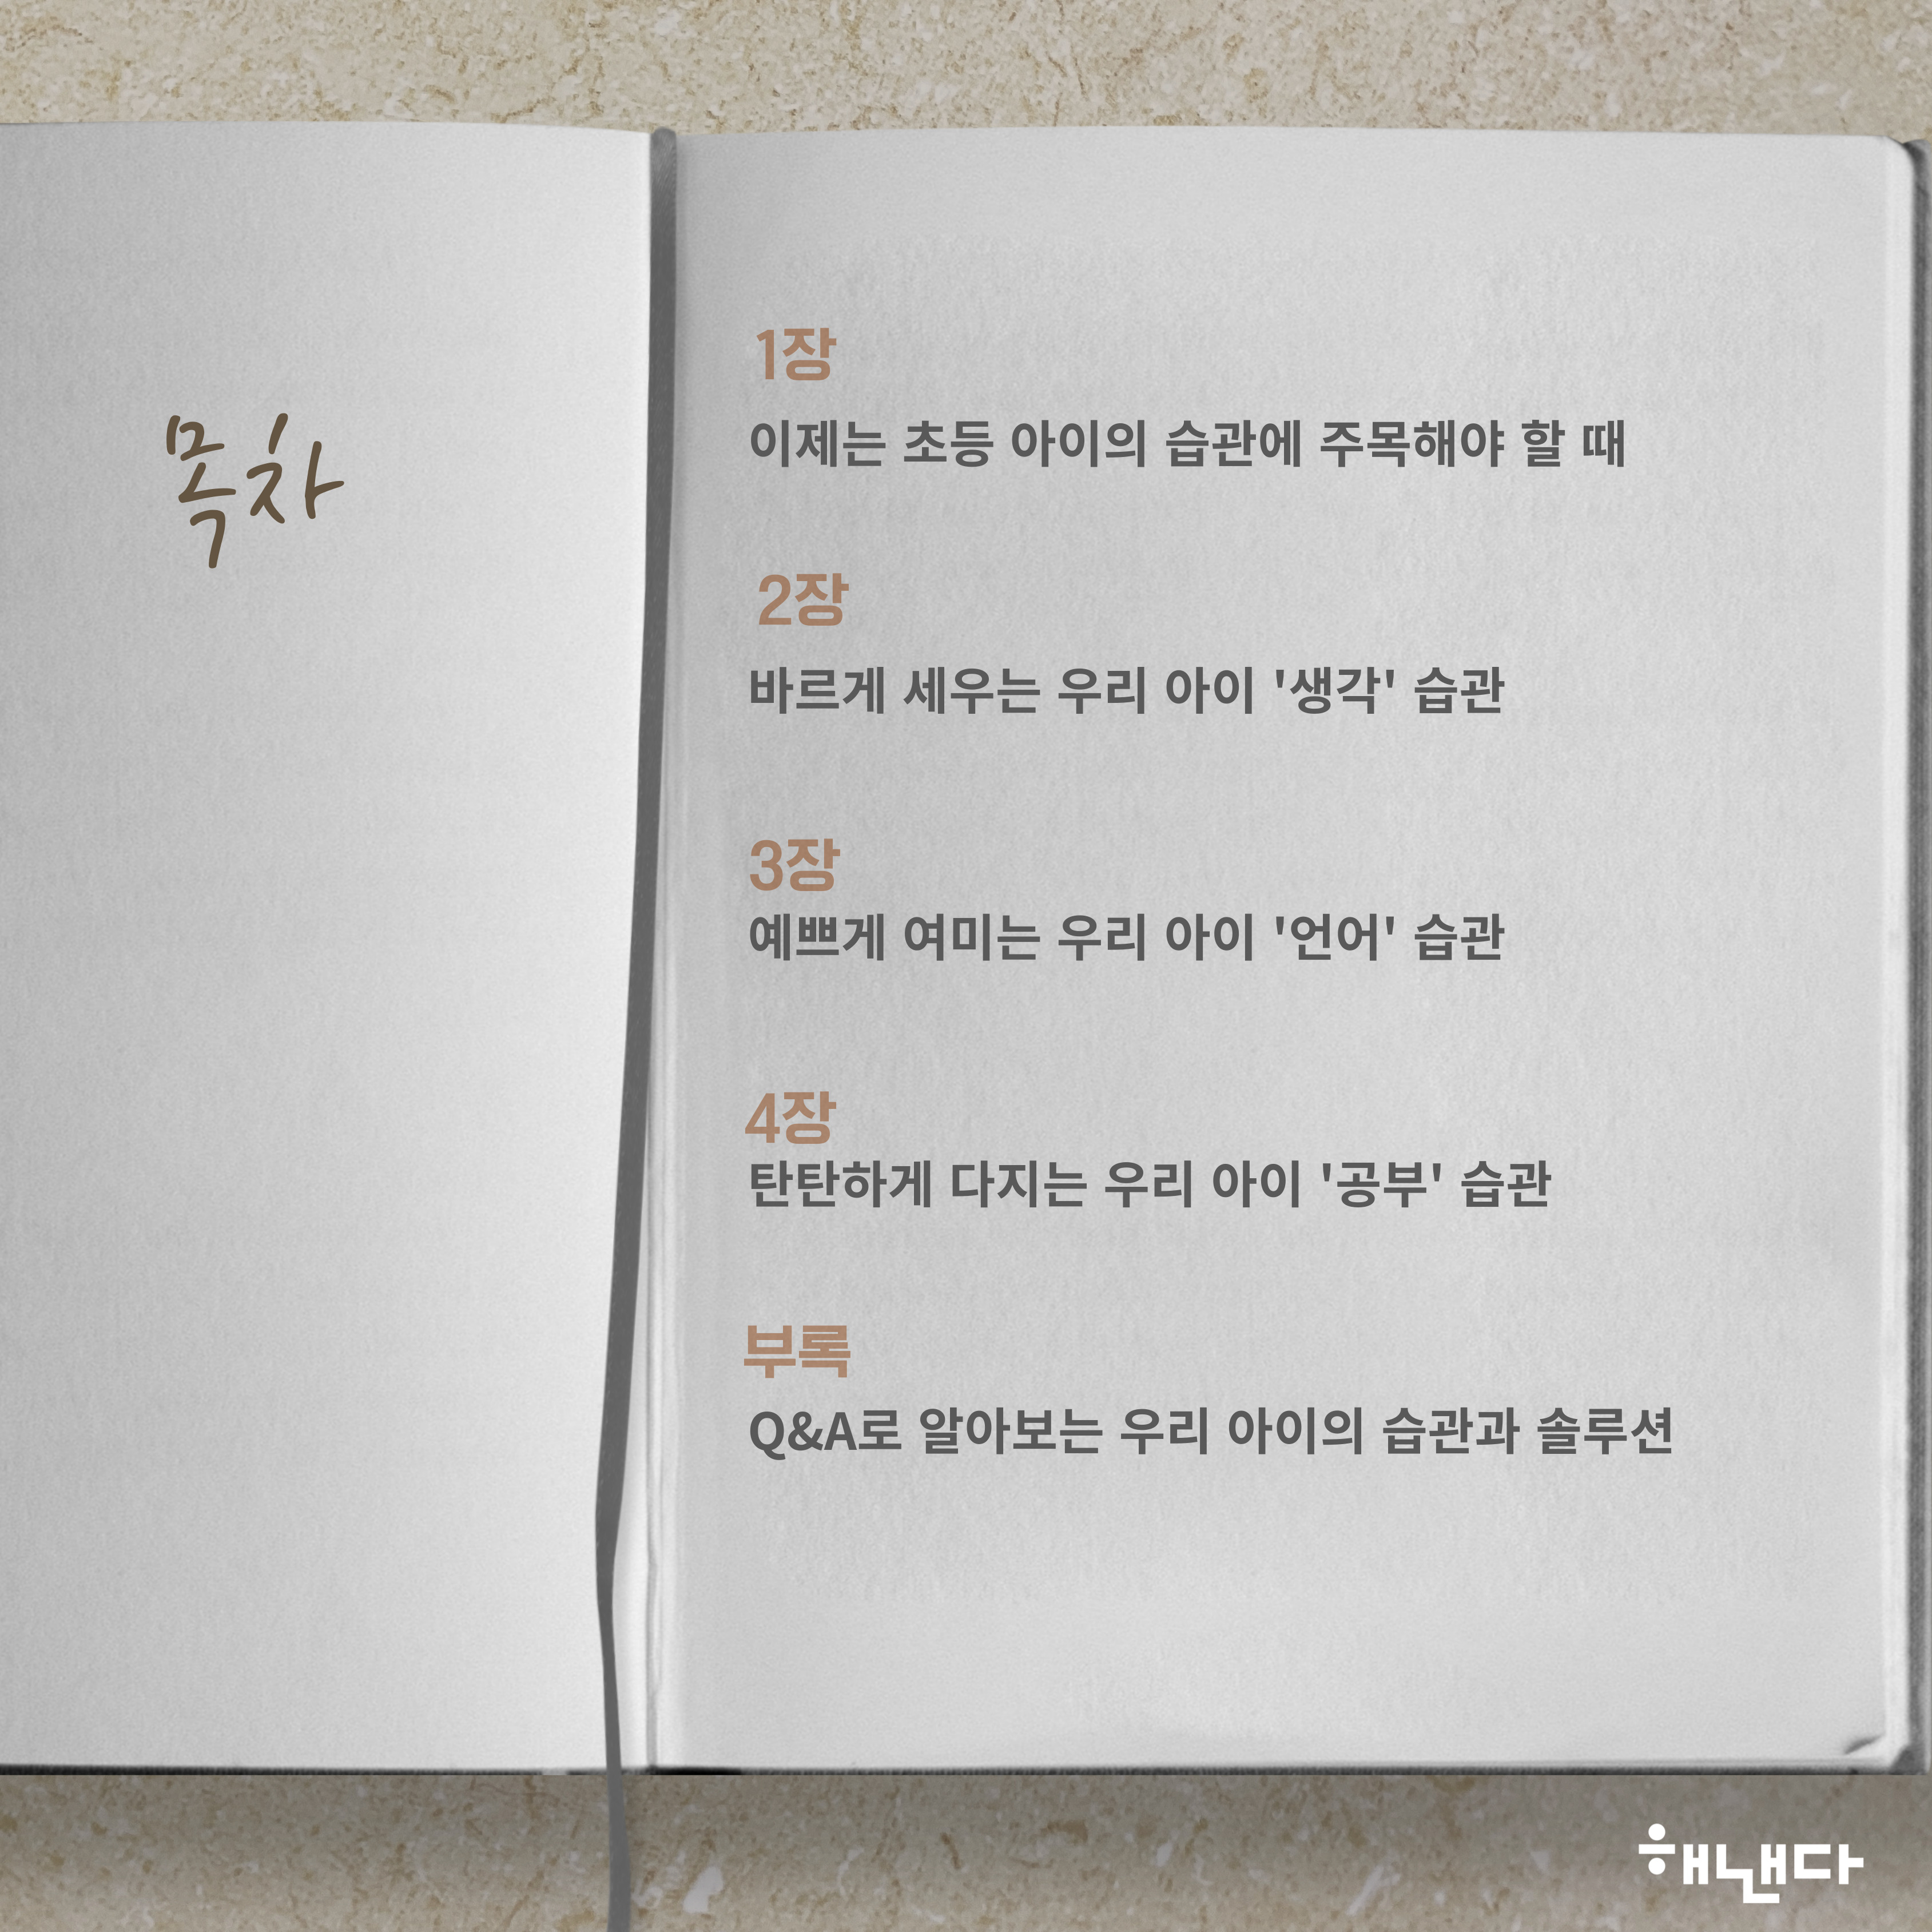 목차
1장
이제는 초등 아이의 습관에 주목해야 할 때
2장
바르게 세우는 우리 아이 '생각' 습관
3장
예쁘게 여미는 우리 아이 '언어' 습관
4장
탄탄하게 다지는 우리 아이 '공부' 습관
부록
Q&A로 알아보는 우리 아이의 습관과 솔루션
해낸다